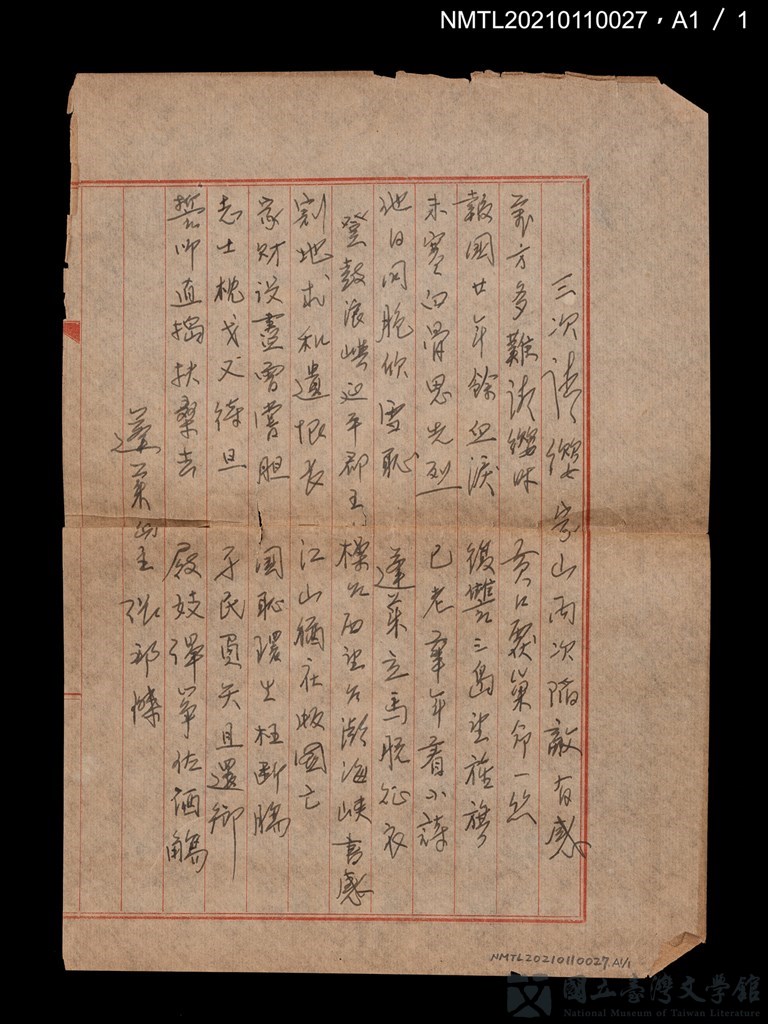 NMTL20210110027，A1 / 1
三次請纓家山兩次陷敵有感
萬方多難請纓時　黃口覆巢命一絲
報國廿年餘血淚　復讐三島望旌旗
未寒白骨思先烈　已老童年看小詩
他日同胞欣雪恥　蓬萊立馬脫征衣
登鼓浪嶼延平郡王操台西望台澎海峽書感
割地求和遺恨長　江山猶在版圖亡
家財設盡曾嘗膽　國恥環生枉斷腸
志士枕戈又待旦　子民負矢且還鄉
誓師直搗扶桑去　殿妓彈箏佐酒觴
蓬萊山主張邦傑
NMTL20210110027.A1/1
國立臺灣文學館
National Museum of Taiwan Literature